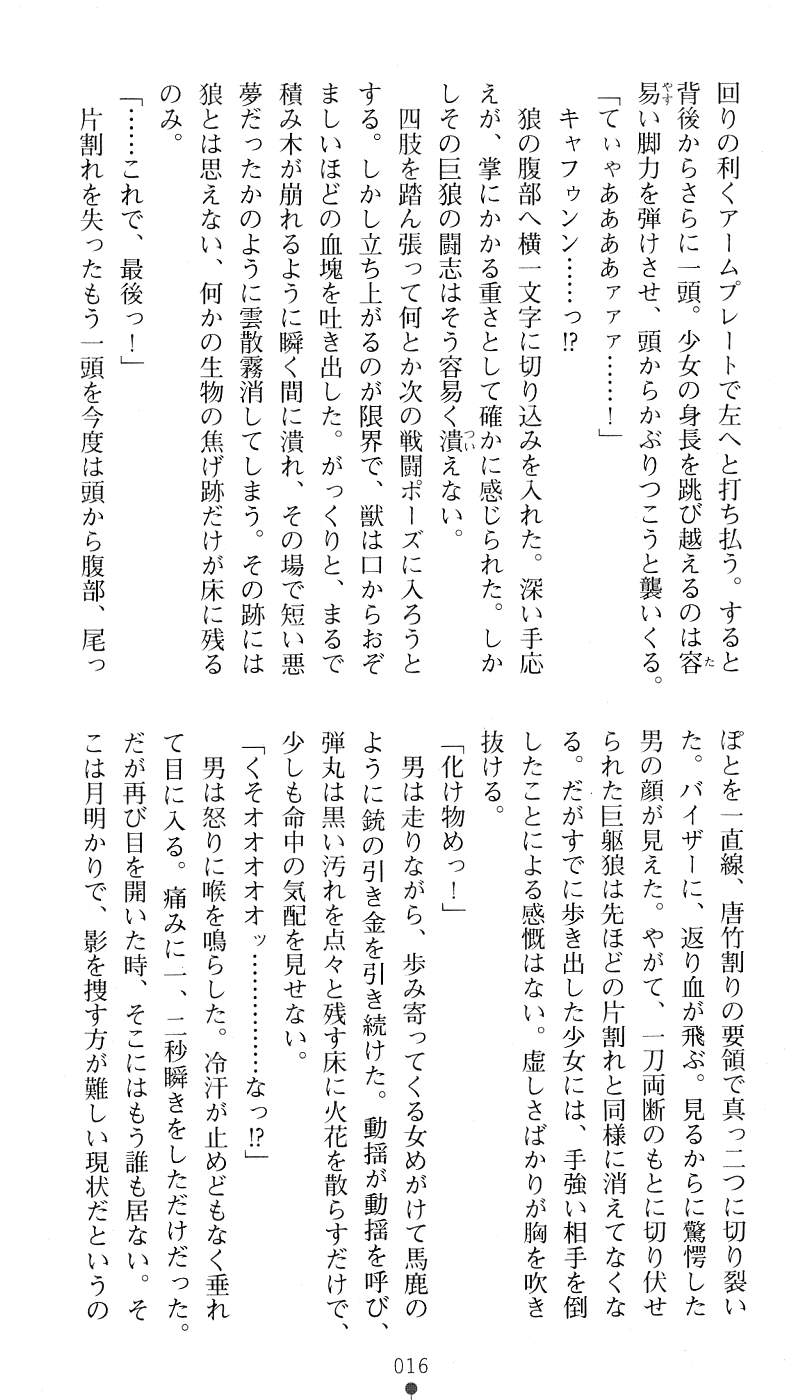 回りの利くアームプレートで左へと打ち払う。すると
背後からさらに一頭。少女の身長を跳び越えるのは容
易い脚力を弾けさせ、頭からかぶりつこうと襲いくる。
「てぃゃああああァァァ……！」
キャフゥンン……っ!?
狼の腹部へ横一文字に切り込みを入れた。深い手応
えが、掌にかかる重さとして確かに感じられた。しか
しその巨狼の闘志はそう容易く潰えない。
四肢を踏ん張って何とか次の戦闘ポーズに入ろうと
する。しかし立ち上がるのが限界で、獣は口からおぞ
ましいほどの血塊を吐き出した。がっくりと、まるで
積み木が崩れるように瞬く間に潰れ、その場で短い悪
夢だったかのように雲散霧消してしまう。その跡には
狼とは思えない、何かの生物の焦げ跡だけが床に残る
のみ。
「……これで、最後っ！」
片割れを失ったもう一頭を今度は頭から腹部、尾っ
ぽとを一直線、唐竹割りの要領で真っ二つに切り裂い
た。バイザーに、返り血が飛ぶ。見るからに驚愕した
男の顔が見えた。やがて、一刀両断のもとに切り伏せ
られた巨躯狼は先ほどの片割れと同様に消えてなくな
る。だがすでに歩き出した少女には、手強い相手を倒
したことによる感慨はない。虚しさばかりが胸を吹き
抜ける。
「化け物めっ！」
男は走りながら、歩み寄ってくる女めがけて馬鹿の
ように銃の引き金を引き続けた。動揺が動揺を呼び、
弾丸は黒い汚れを点々と残す床に火花を散らすだけで、
少しも命中の気配を見せない。
「くそオオオオオッ……………なっ!?」
男は怒りに喉を鳴らした。冷汗が止めどもなく垂れ
て目に入る。痛みに一、二秒瞬きをしただけだった。
だが再び目を開いた時、そこにはもう誰も居ない。そ
こは月明かりで、影を捜す方が難しい現状だというの
016